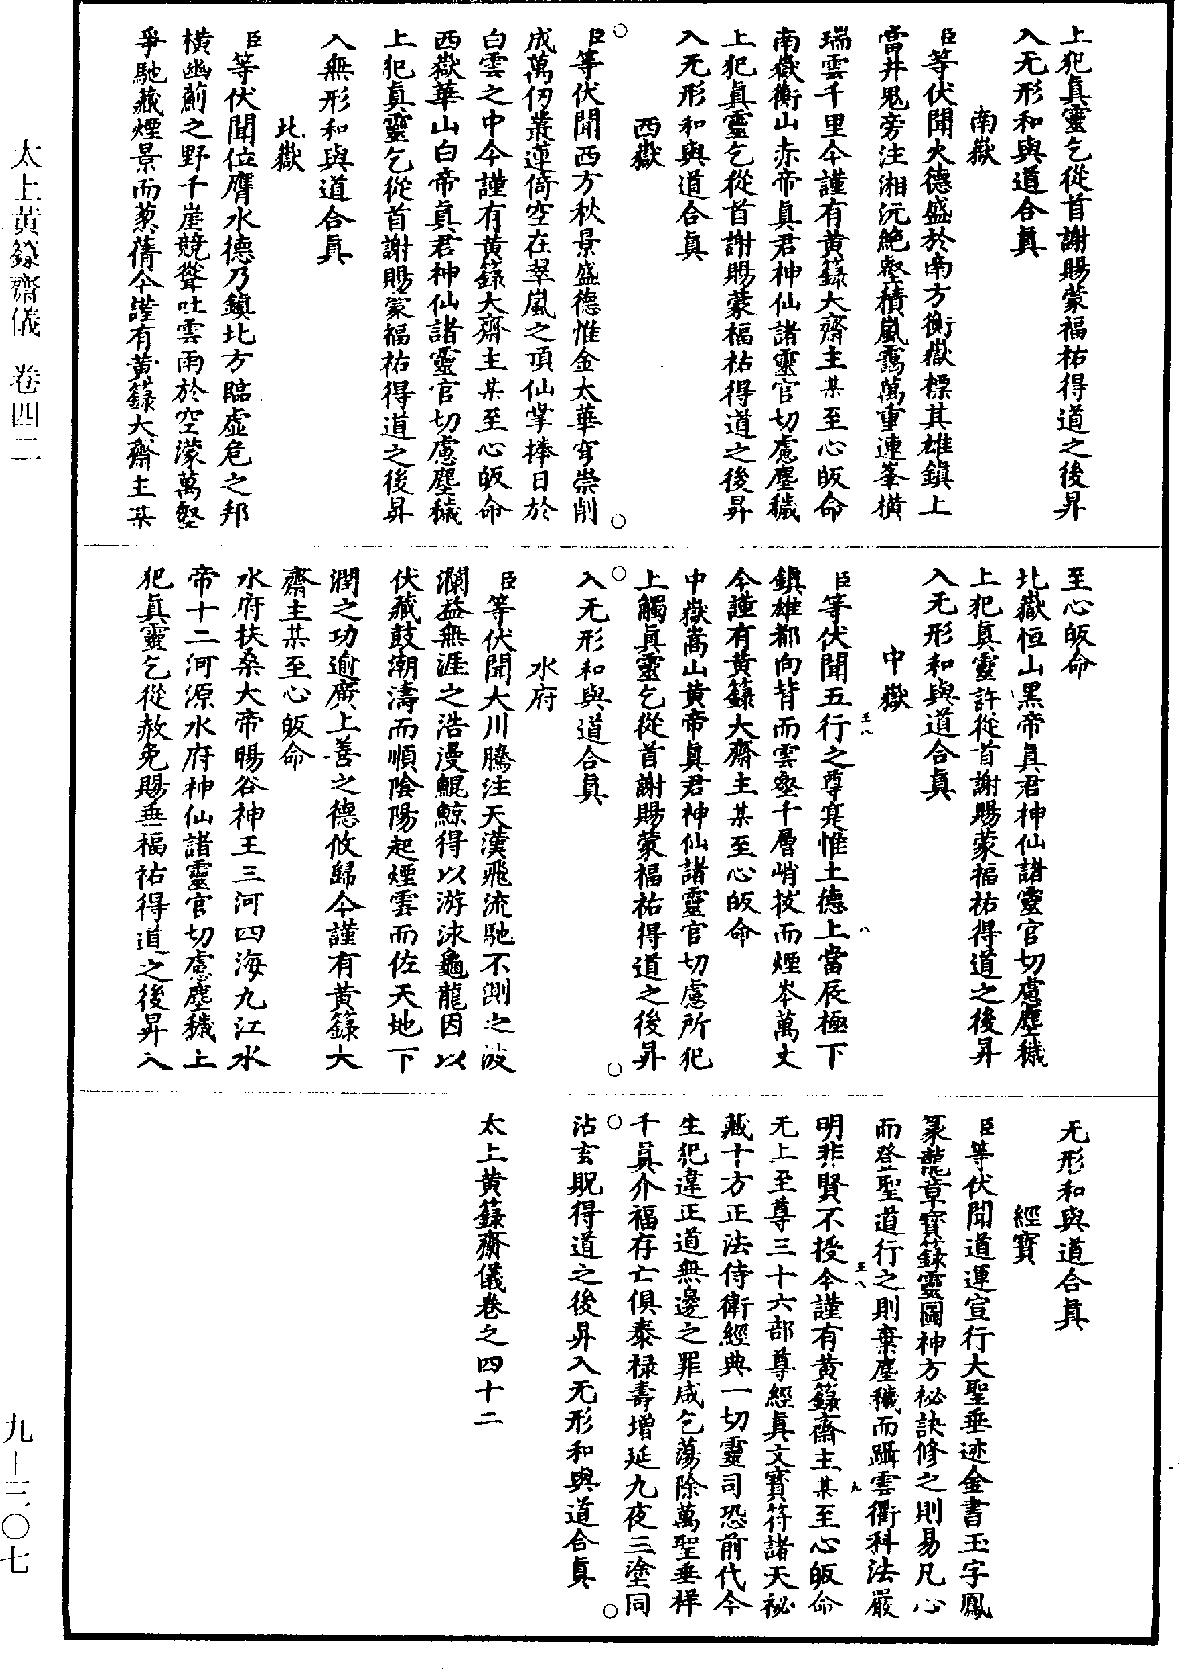 上犯眞靈乞從首謝賜蒙福祐得道之後昇
入无形和與道合眞
南嶽
臣等伏聞火德盛於南方衡嶽標其雄鎭上
當井鬼旁注湘沅絶壑積嵐靄萬重連峯橫
瑞雲千里今謹有黃籙大齋主某至心皈命
南嶽衡山赤帝眞君神仙諸靈官切慮塵穢
上犯眞靈乞從首謝賜蒙福祐得道之後昇
入无形和與道合眞
西嶽
臣等伏聞西方秋景盛德惟金太華穹崇削
成萬仞叢蓮倚空在翠嵐之頂仙掌捧日於
白雲之中今謹有黃籙大齋主某至心皈命
西嶽華山白帝眞君神仙諸靈官切慮塵穢
上犯眞靈乞從首謝賜蒙福祐得道之後昇
入無形和與道合眞
北嶽
臣等伏聞位膺水德乃鎭北方臨虛危之邦
橫幽薊之野千崖競聳吐雲雨於空濛萬壑
爭馳藏煙景而葱蒨今謹有黃籙大齋主某
至心皈命
北嶽恒山黑帝眞君神仙諸靈官切慮塵穢
上犯眞靈許從首謝賜蒙福祐得道之後昇
入无形和與道合眞
中嶽
臣等伏聞五行之尊寔惟土德上當辰極下
鎭雄都向背而雲壑千層峭拔而煙岑萬丈
今謹有黃籙大齋主某至心皈命
中嶽嵩山黃帝眞君神仙諸靈官切慮所犯
上觸眞靈乞從首謝賜蒙福祐得道之後昇
入无形和與道合眞
水府
臣等伏聞大川騰注天漢飛流馳不測之波
瀾益無涯之浩漫鯤鯨得以游泳龜龍因以
伏藏鼓潮濤而順陰陽起煙雲而佐天地下
潤之功逾廣上善之德攸歸今謹有黃籙大
齋主某至心皈命
水府扶桑大帝暘谷神王三河四海九江水
帝十二河源水府神仙諸靈官切慮塵穢上
犯眞靈乞從赦免賜垂福祐得道之後昇入
无形和與道合眞
經寶
臣等伏聞道運宣行大聖垂迹金書玉字鳳
篆龍章寶籙靈圖神方秘訣修之則易凡心
而登聖道行之則棄塵穢而躡雲衢科法嚴
明非賢不授今謹有黃籙齋主某至心皈命
无上至尊三十六部尊經眞文寶符諸天秘
藏十方正法侍衛經典一切靈司恐前代今
生犯違正道無邊之罪咸乞蕩除萬聖垂祥
千眞介福存亡俱泰祿壽增延九夜三塗同
沾玄貺得道之後昇入无形和與道合眞
太上黃籙齋儀卷之四十二
太上黃籙齋儀 卷四二
九—三〇七